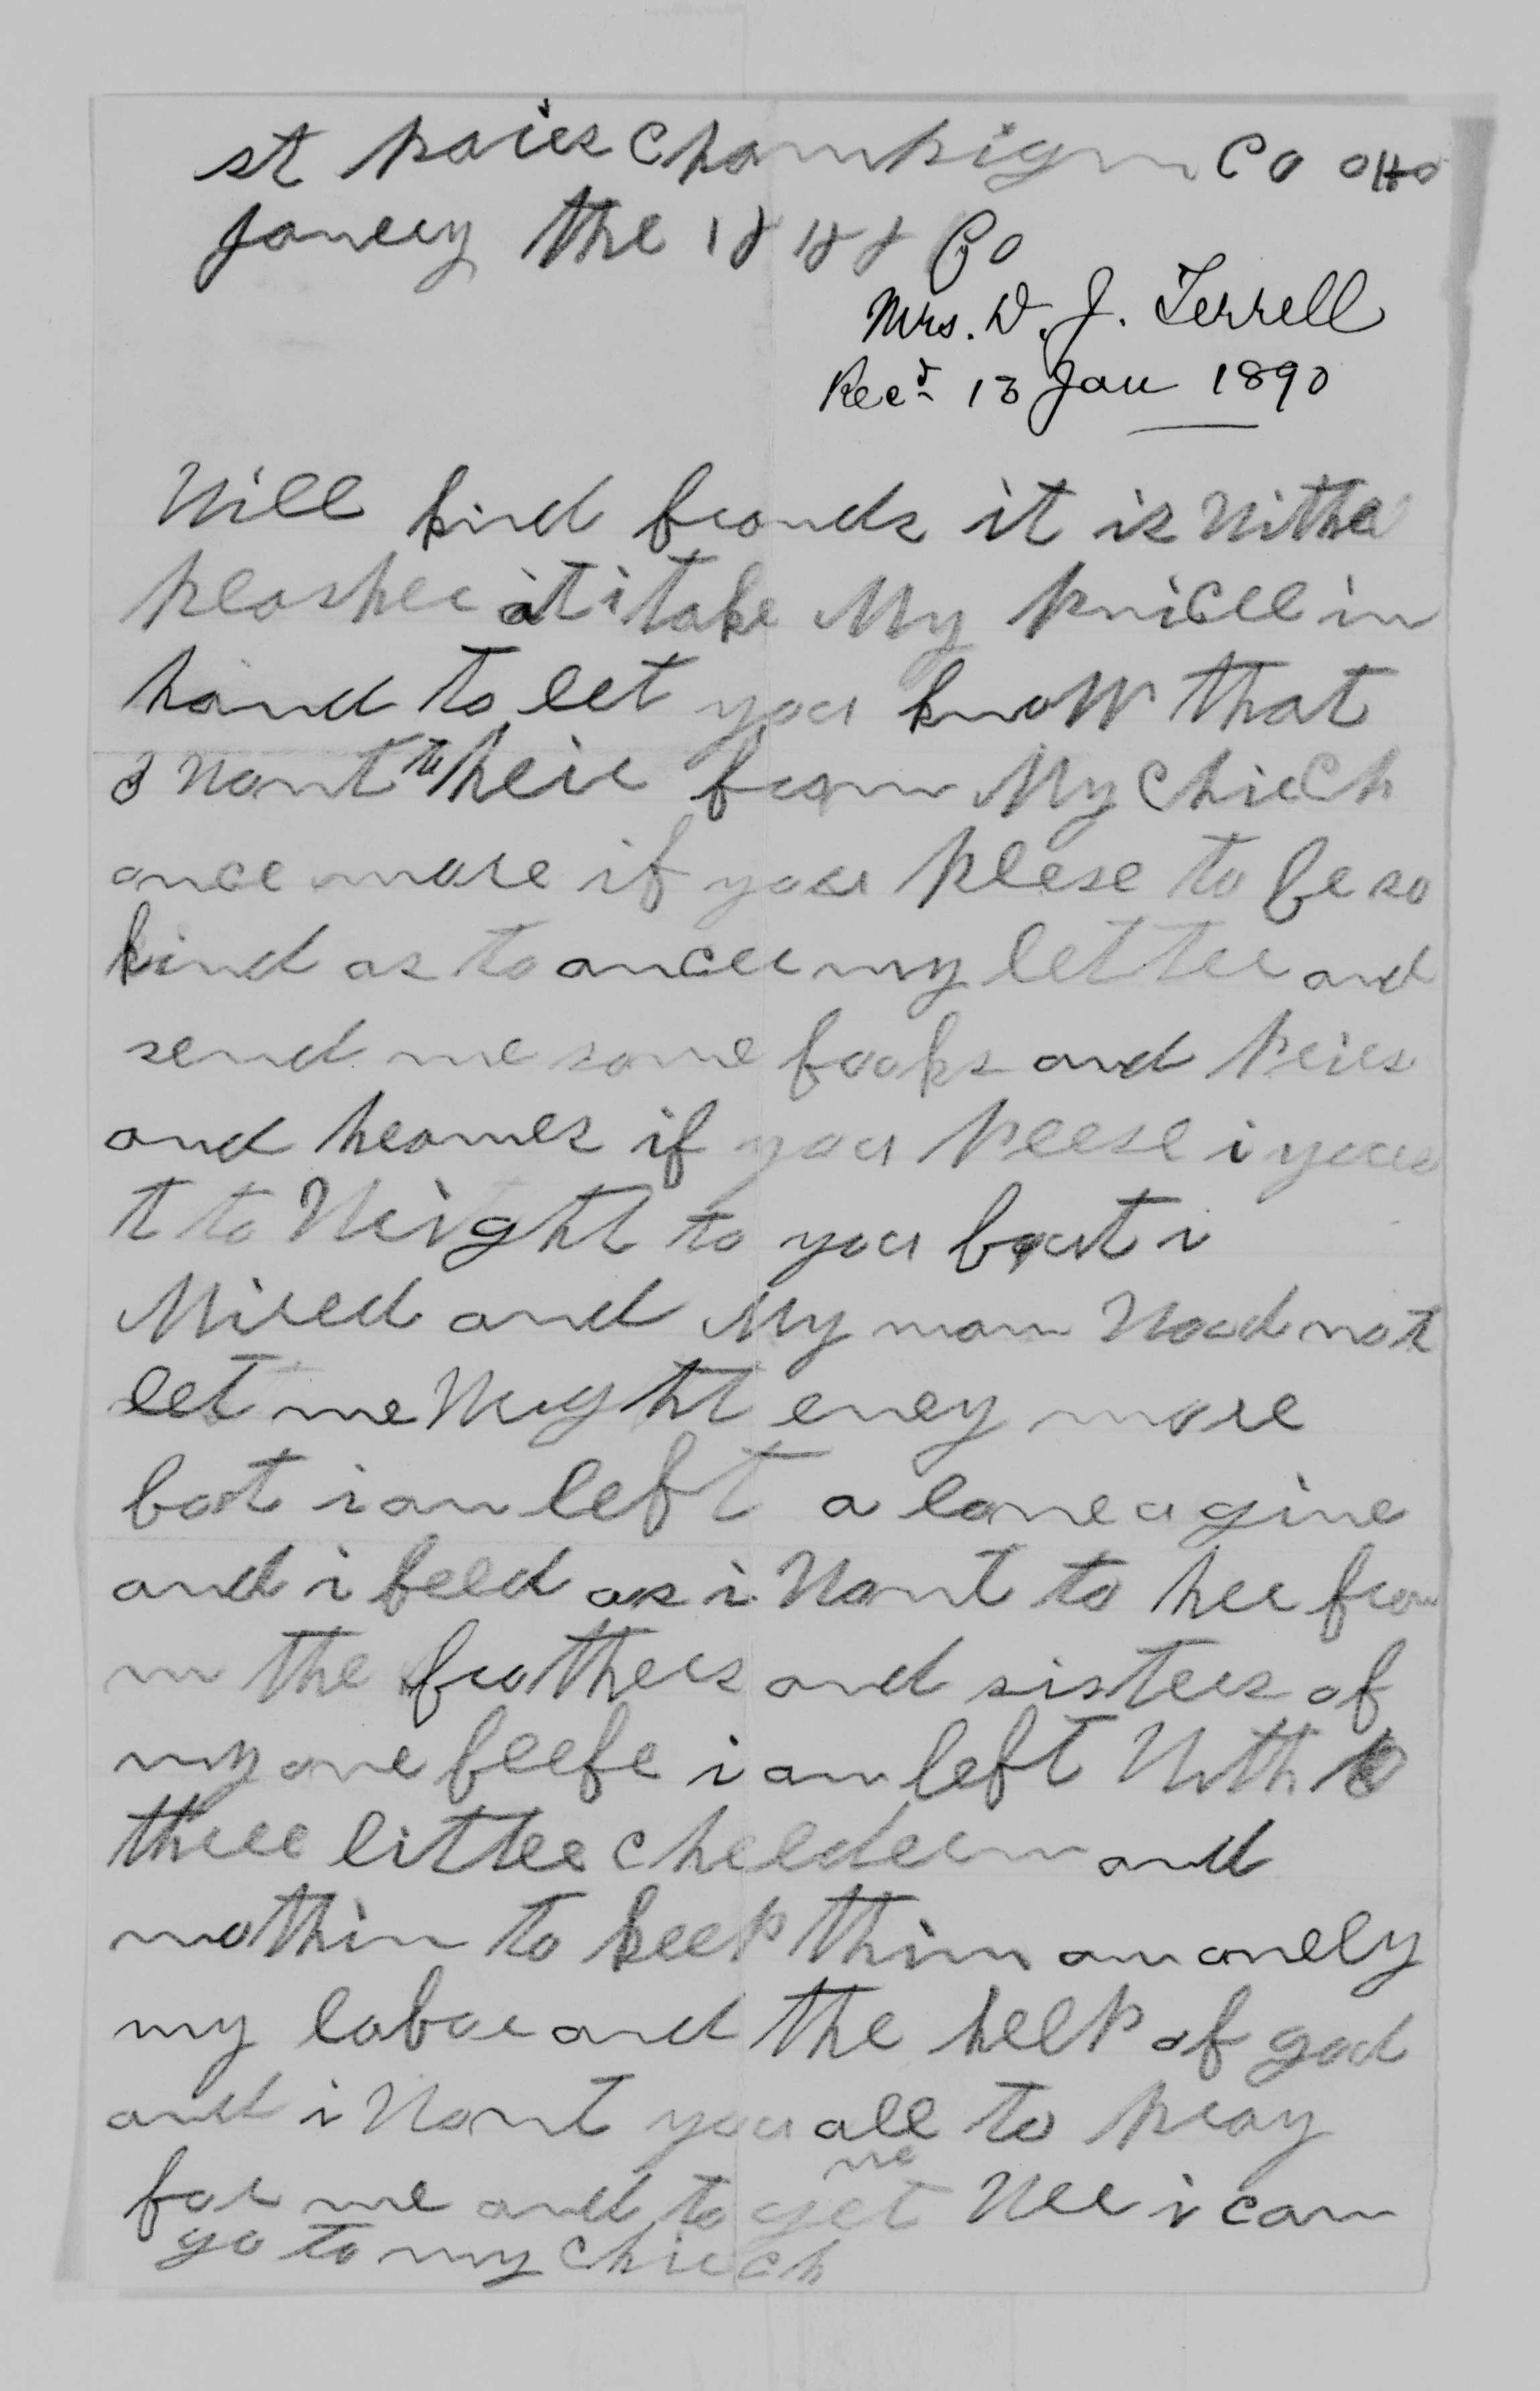 st paies Champign Co oHo
Janery the 18 188 90
Mrs. D. J. Terrell
Recd 13 Jan 1890
Will kind frands it is withe
plasher at i take My pnicel in
hand to let you know that
I want to heir from My Chirch
once more if you plese to be so
kind as to ancer my letter and
send me some books and peies
and heames if you plese i youse
t to Wright to you but i
Mired and My man Wood not
let me Wright eney more
bot i am left a lone a gine
and i feeld as i Want to her from
m the brothers and sisters of
my one beefe i am left With
three little cheldern and
nothin to keep thim on onely
my labor and the help of god
and i Want you all to pray
for me and to get me Wer i can
go to my chirch